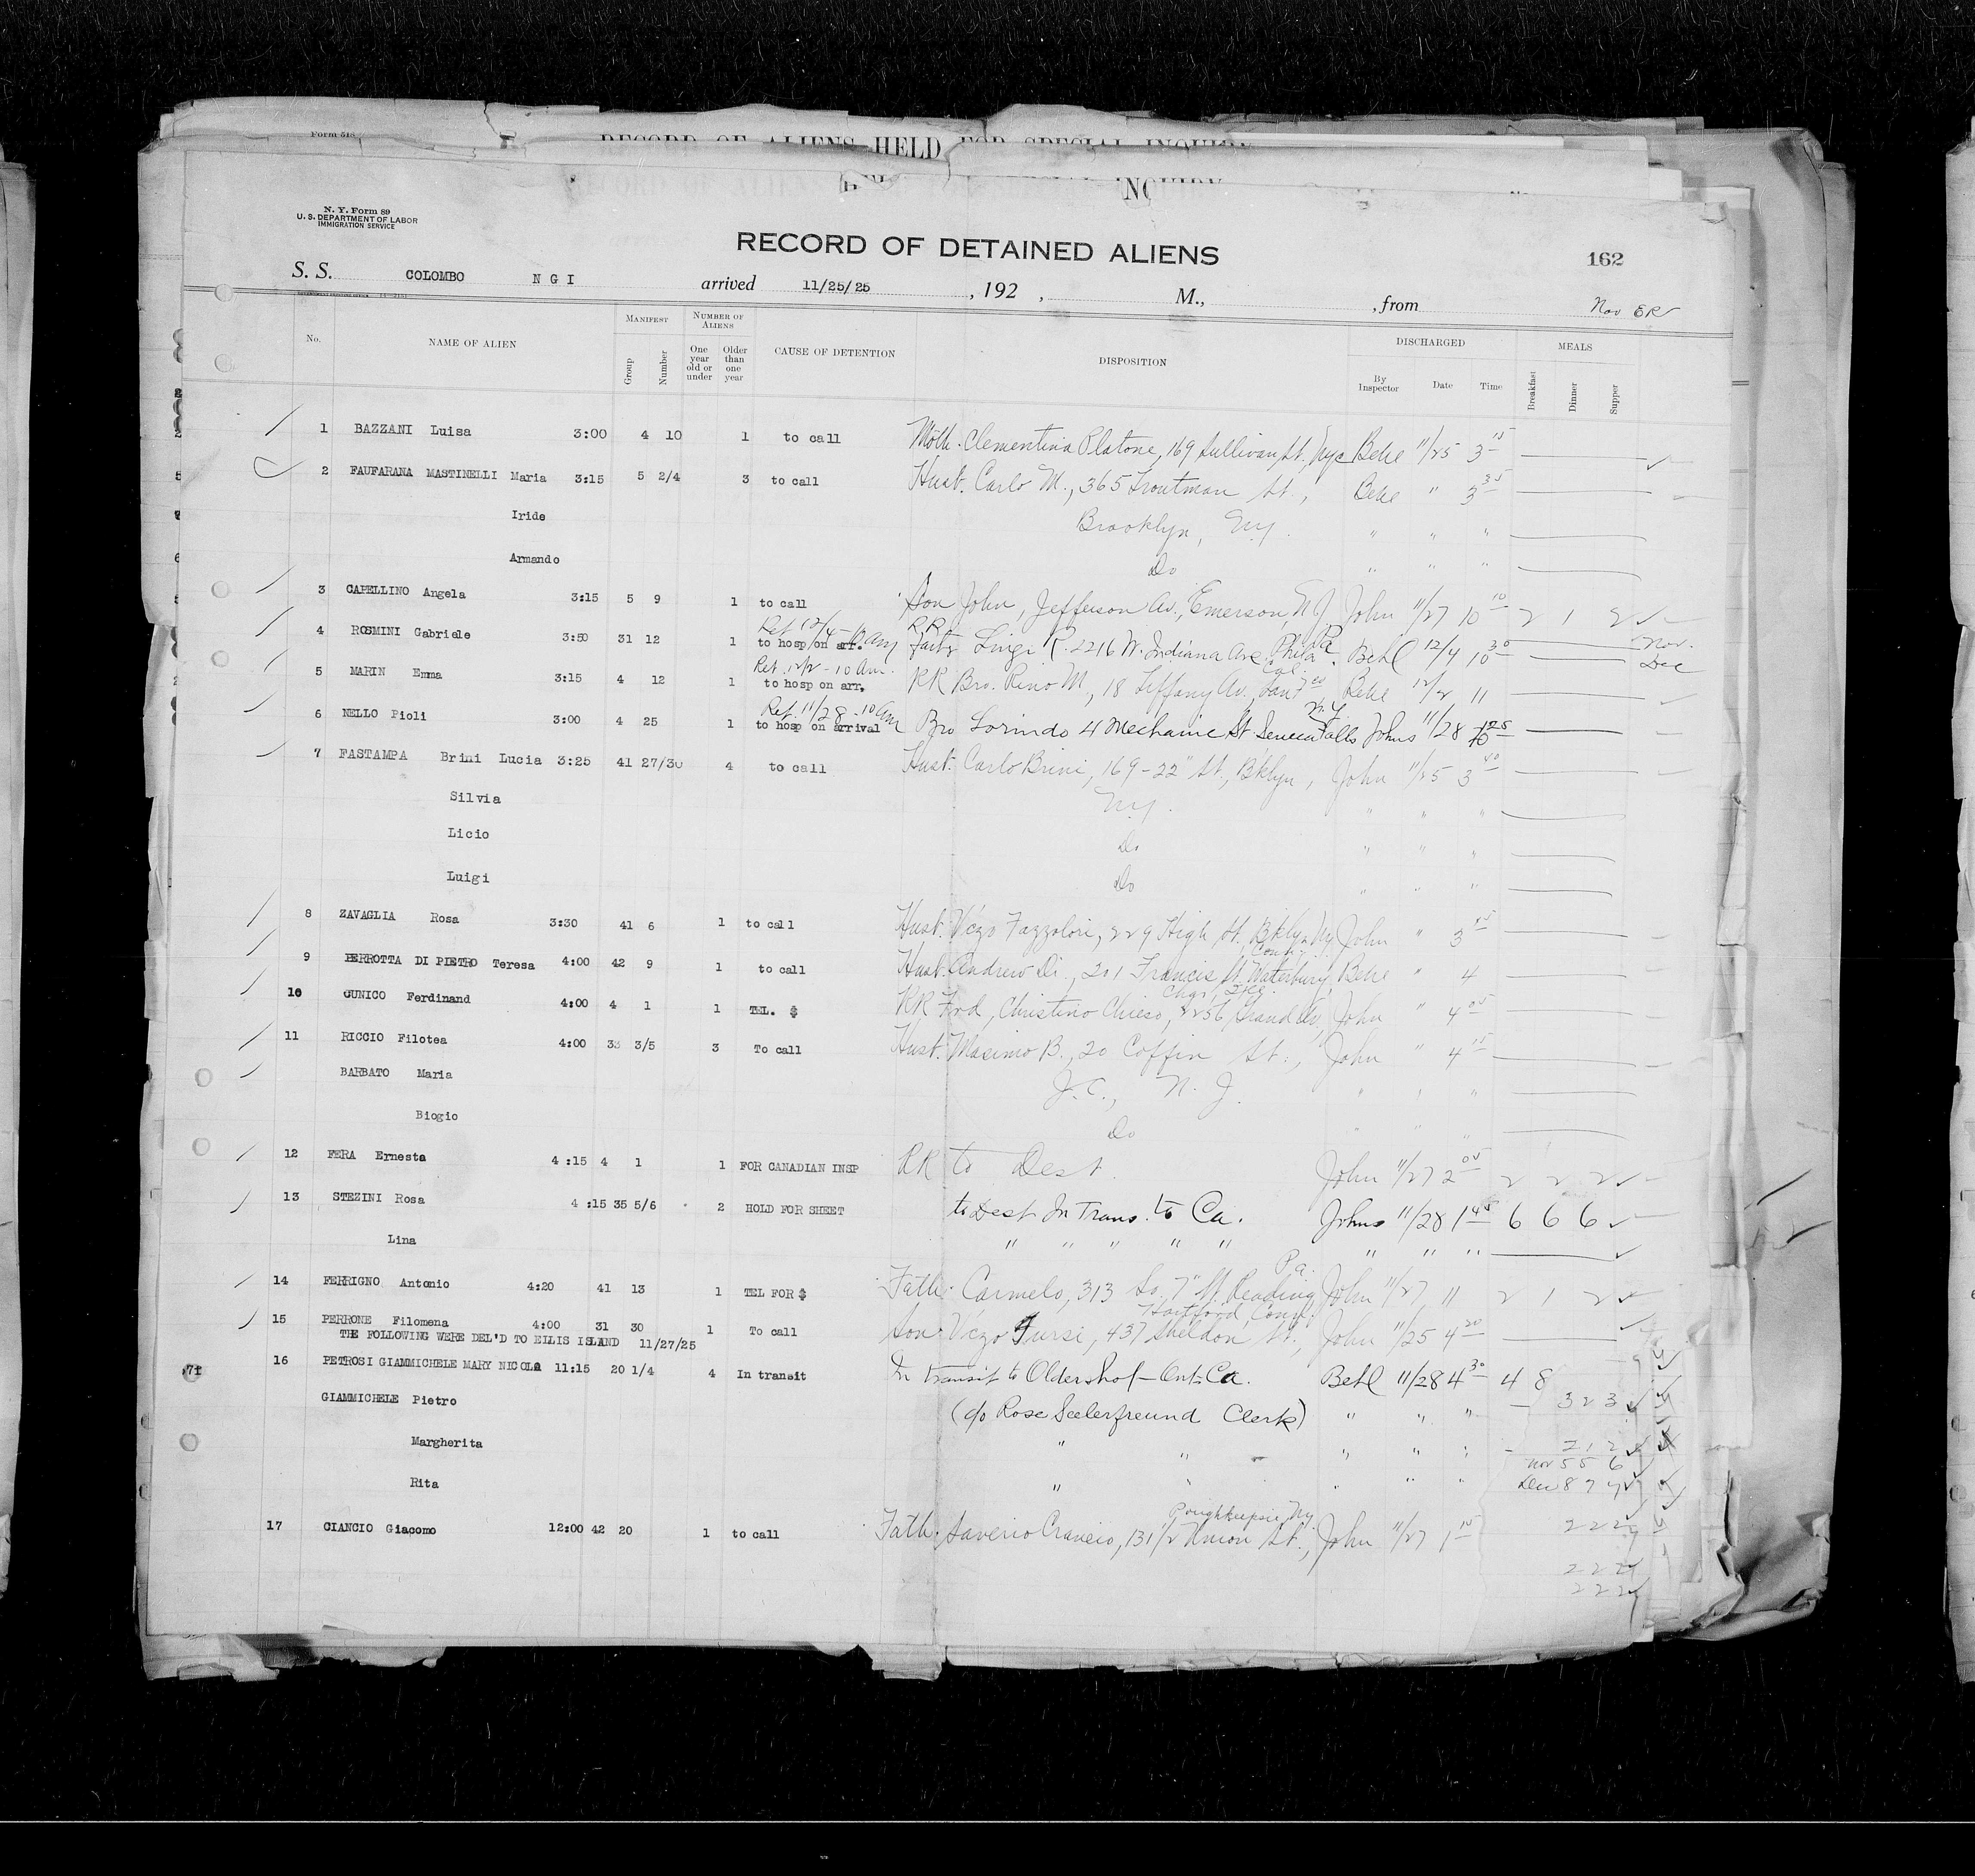 Form 518
RECORD OF ALIENS HELD FOR SPECIAL INQUIRY
INQUIRY
N. Y. Form 89
U. S. DEPARTMENT OF LABOR
IMMIGRATION SERVICE
RECORD OF DETAINED ALIENS
162
S. S. COLOMBO N G I arrived 11/25/25, 192 , M., , from Nov
No. NAME OF ALIEN MANIFEST Group Number NUMBER OF ALIENS One year old or under Older than one year CAUSE OF DETENTION DISPOSITION DISCHARGED By Inspector Date Time MEALS Breakfast Dinner Supper
1 BAZZANI Luisa 3:00 4 10 1 to call Moth. Clementina Platone, 169 Sullivan St. Nyc Behe 11/25 3 15
2 FAUFARANA MASTINELLI Maria 3:15 5 2/4 3 to call Husb. Carlo M., 365 Troutman St., Behe " 3 35
Iride Brooklyn, Ny. " " "
Armando Do " " "
3 CAPELLINO Angela 3:15 5 9 1 to call Son John, Jefferson Av., Emerson, N J. John 11/27 10 10 2 1 2
Ret. 12/4 - 10 am RR Pa Nov.
4 ROSMINI Gabriele 3:50 31 12 1 to hosp/on arr. R. 2216 W. Indiana Ave. Phila. Behl 12/4 10 30
Ret. 12/2 - 10 am. Cal. Dec
5 MARIN Emma 3:15 4 12 1 to hosp on arr. RR Bro. Rino M., 18 Tiffany Av., Behe 12/2 11
Ret. 11/28 - 10 am N.Y.
6 NELLO Pioli 3:00 4 25 1 to hosp on arrival Bro Lorindo 4 Mechanic St Seneca Falls Johns 11/28
7 FASTAMPA Brini Lucia 3:25 41 27/30 4 to call Husb. Carlo Brini, 169-22" St., Bklyn, John 11/25 3 40
Silvia Ny. " " "
Licio Do " " "
Luigi Do " " "
8 ZAVAGLIA Rosa 3:30 41 6 1 to call Husb. V'czo Fazzolori, 229 High St. Bklyn Ny John " 3 45
Conn.
9 PERROTTA DI PIETRO Teresa 4:00 42 9 1 to call Husb. Andrew Di., 201 Francis St. Waterbury, Behe " 4
Chgo, Ill.
10 GUNICO Ferdinand 4:00 4 1 1 TEL. $ RR Frd, Christino Chieso, 2256 Grand Av, John " 4 05
11 RICCIO Filotea 4:00 33 3/5 3 To call Husb. Masimo B., 20 Coffin St., John " 4 15
BARBATO Maria J. C., N. J. " " "
Biogio Do " " "
12 FERA Ernesta 4:15 4 1 1 FOR CANADIAN INSP RR to Dest. John 11/27 2 05 2 2 2
13 STEZINI Rosa 4:15 35 5/6 2 HOLD FOR SHEET to Dest In Trans. to Ca. Johns 11/28 1 45 6 6 6
Lina " " " " " " " "
Pa.
14 FERRIGNO Antonio 4:20 41 13 1 TEL FOR $ Fath. Carmelo, 313 So. 7" St. Reading John 11/27 11 2 1 2
Hartford, Conn.
15 PERRONE Filomena 4:00 31 30 1 To call Son V'czo Tursi, 437 Sheldon St., John 11/25 4 20
THE FOLLOWING WERE DEL'D TO ELLIS ISLAND 11/27/25
16 PETROSI GIAMMICHELE MARY NICOLA 11:15 20 1/4 4 In transit In transit to Oldershof-Ont-Ca. Behl 11/28 4 30 4 8
GIAMMICHELE Pietro (c/o Rose Seelerfreund Clerk) " " " 3 2 3
Margherita " " " " " 2 1 2
Nov 5 5 6
Rita " " " " " Dec 8 7 7
Poughkeepsie, Ny.
17 CIANCIO Giacomo 12:00 42 20 1 to call Fath. Saverio Crancio, 131 1/2 Union St., John 11/27 1 15 2 2 2
2 2 2
2 2 2